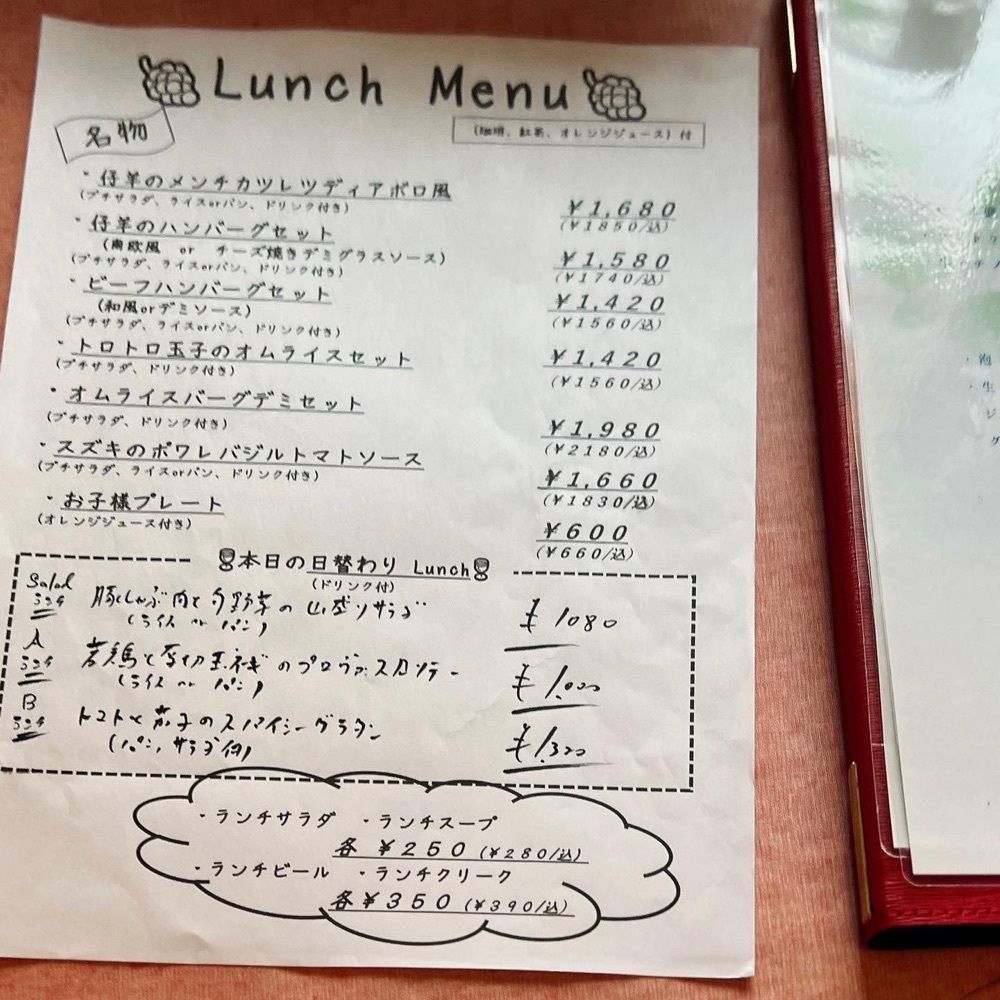 Lunch Menu
名物
(珈琲、紅茶、オレンジジュース)付
・仔羊のメンチカツレツディアボロ風 ¥1,680
(プチサラダ、ライスorパン、ドリンク付き) (¥1850/込)
・仔羊のハンバーグセット ¥1,580
(南欧風 or チーズ焼きデミグラスソース) (¥1740/込)
(プチサラダ、ライスorパン、ドリンク付き)
・ビーフハンバーグセット ¥1,420
(和風orデミソース) (¥1560/込)
(プチサラダ、ライスorパン、ドリンク付き)
・トロトロ玉子のオムライスセット ¥1,420
(プチサラダ、ドリンク付き) (¥1560/込)
・オムライスバーグデミセット ¥1,980
(プチサラダ、ドリンク付き) (¥2180/込)
・スズキのポワレバジルトマトソース ¥1,660
(プチサラダ、ライスorパン、ドリンク付き) (¥1830/込)
・お子様プレート ¥600
(オレンジジュース付き) (¥660/込)
本日の日替わり Lunch
(ドリンク付)
Salad ランチ 豚しゃぶ肉と旬野菜の山盛りサラダ ¥1080
(ライス or パン)
A ランチ 若鶏と厚切玉ネギのプロヴァンスカソテー ¥1,000
(ライス or パン)
B ランチ トマトと茄子のスパイシーグラタン ¥1,300
(パン、サラダ付)
・ランチサラダ ・ランチスープ
各 ¥250 (¥280/込)
・ランチビール ・ランチクリーク
各¥350 (¥390/込)